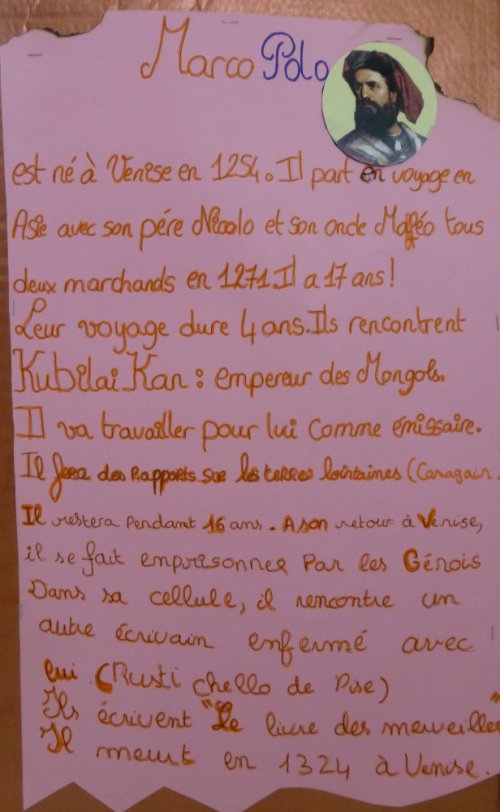 Marco Polo
est né à Venise en 1254. Il part en voyage en
Asie avec son pére Nicolo et son oncle Mafféo tous
deux marchands en 1271 Il a 17 ans!
Leur voyage dure 4 ans. Ils rencontrent
Kubilai Kan : empereur des Mongols.
Il va travailler pour lui comme émissaire.
Il fera des Rapports sur les terres lointaines (
Il restera Pendant 16 ans. A son retour à Venise,
il se fait emprisonner Par les Génois
Dans sa cellule, il rencontre un
autre écrivain enfermé avec
lui (Rusti chello de Pise)
Ils écrivent "Le livre des merveilles"
Il meurt en 1324 à Venise.